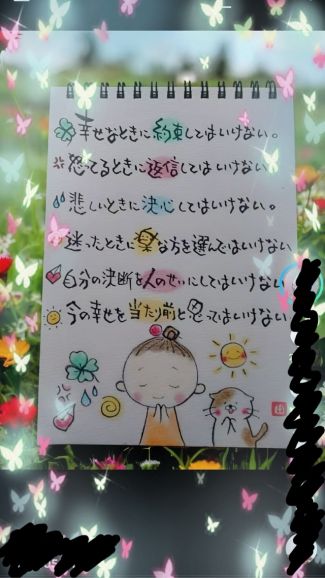 幸せなときに約束してはいけない。
怒ってるときに返信してはいけない。
悲しいときに決心してはいけない。
迷ったときに楽な方を選んではいけない
自分の決断を人のせいにしてはいけない
今の幸せを当たり前と思ってはいけない